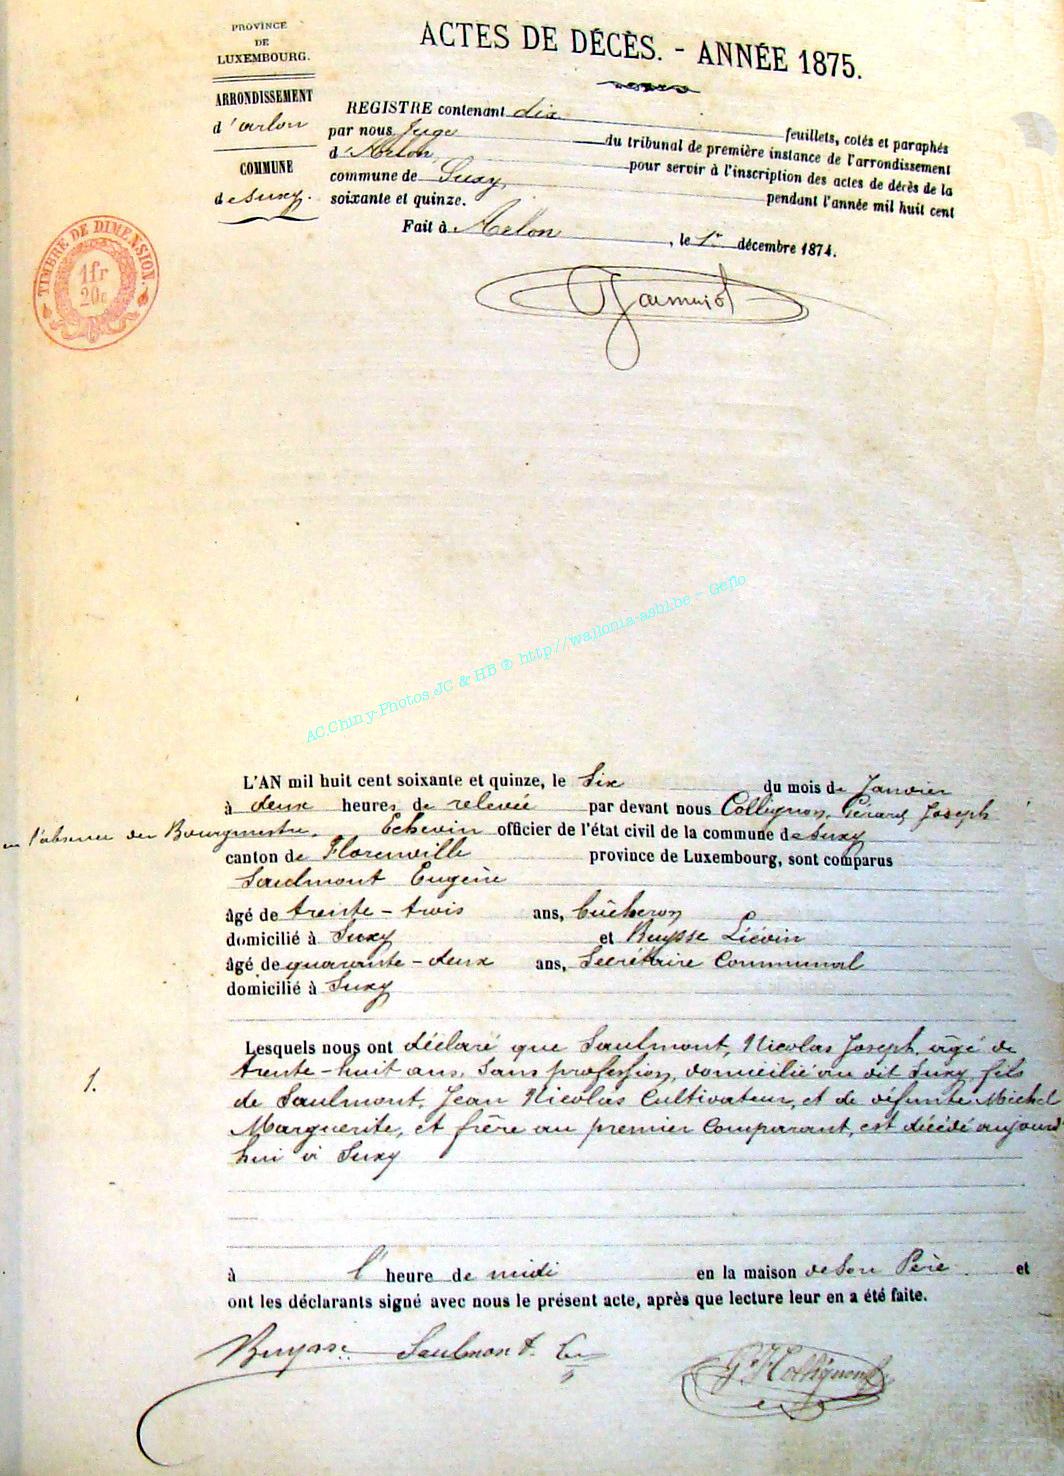 PROVINCE
DE
LUXEMBOURG.
ARRONDISSEMENT
d'arlon
COMMUNE
de Suxy.
TIMBRE DE DIMENSION.
1fr
20c
ACTES DE DÉCÈS. - ANNÉE 1875.
REGISTRE contenant dix feuillets, cotés et paraphés
par nous Juge du tribunal de première instance de l'arrondissement
d'Arlon, pour servir à l'inscription des actes de décès de la
commune de Suxy, pendant l'année mil huit cent
soixante et quinze.
Fait à Arlon, le 1er décembre 1874.
AC.Chiny-Photos JC & HB @ http//wallonia-asbl.be - Geflo
L'AN mil huit cent soixante et quinze, le Six du mois de Janvier
à deux heures de relevée par devant nous Collignon, Gérard Joseph
en l'absence du Bourgmestre, Echevin officier de l'état civil de la commune de Suxy
canton de Florenville province de Luxembourg, sont comparus
Saulmont Eugène
âgé de trente-trois ans, bûcheron
domicilié à Suxy et Buysse Liévin
âgé de quarante-deux ans, Secrétaire Communal
domicilié à Suxy
1.
Lesquels nous ont déclaré que Saulmont, Nicolas Joseph, âgé de
trente-huit ans, Sans profession, domicilié au dit Suxy, fils
de Saulmont, Jean Nicolas Cultivateur, et de défunte Michel
Marguerite, et frère au premier Comparant, est décédé aujourd
hui à Suxy
à l'heure de midi en la maison de son Père et
ont les déclarants signé avec nous le présent acte, après que lecture leur en a été faite.
Buysse Saulmont E. G. J. Collignon